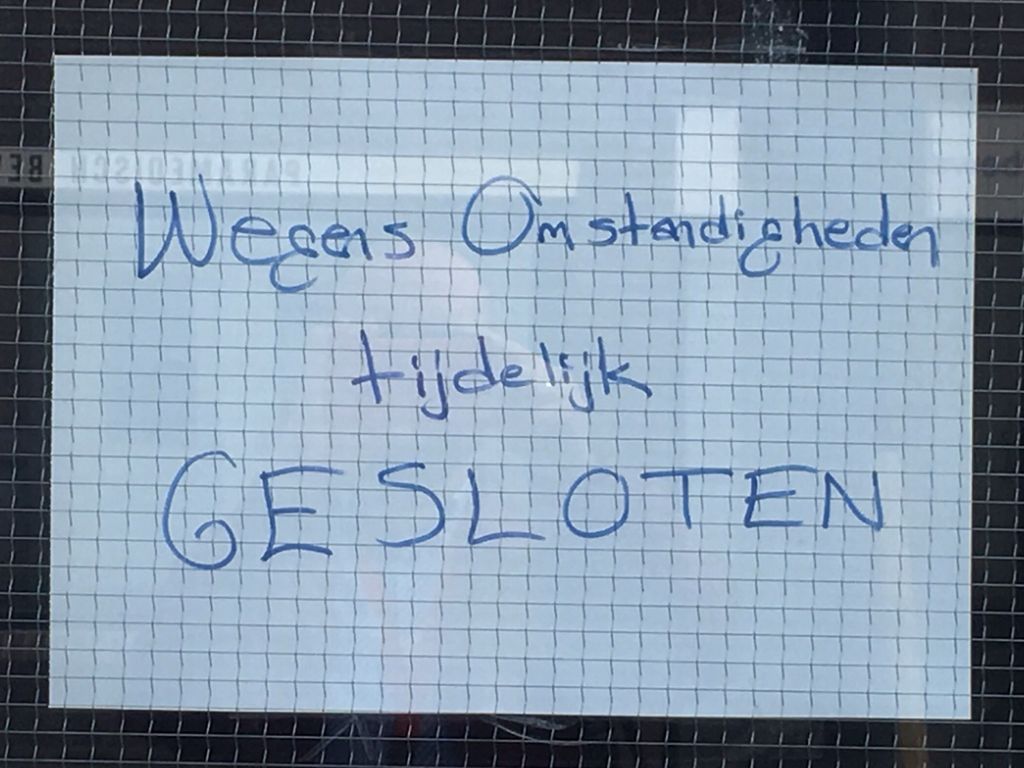 Wegens Omstandigheden
tijdelijk
GESLOTEN